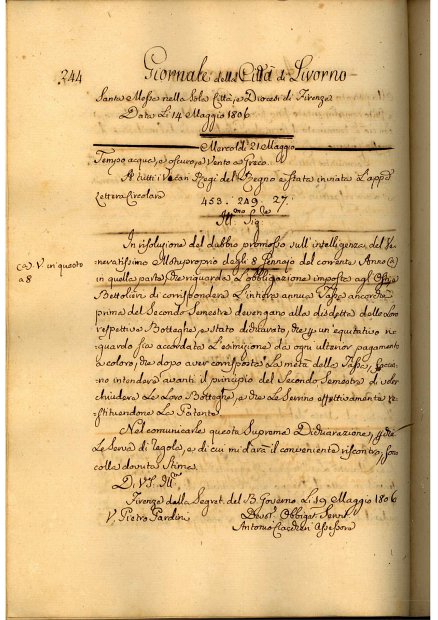 344
Giornale della Città di Livorno
Santa Messa nella Sola Città, e Diocesi di Firenze
Data Li 14 Maggio 1806
Mercoldì 21 Maggio
Tempo acqua, e oscuro, e Vento a Greco.
A tutti i Vicari Regi del Regno è stata inviata l'app.e
Lettera Circolare
453. 249. 27.
Ill.mo Sig.
In risoluzione del dubbio promosso sull'intelligenza del Ve=
neratissimo Motuproprio degli 8 Gennajo del corrente Anno (a)
(a) V. in questo
a 8
in quella parte, che riguarda L'obbligazione imposta agl' Osti, e
Bettolieri di corrispondere L'intiera annua Tassa ancorchè
prima del Secondo Semestre devengano alla disdetta delle Loro
respettive Botteghe, è stato dichiarato, che p un'equitativo ri=
guardo sia accordata L'esenzione da ogni ulterior pagamento
a coloro, che dopo aver corrisposta La metà della Tassa, faccia=
no intendere avanti il principio del Secondo Semestre di voler
chiudere Le Loro Botteghe, e che Le Serrino effettivamente re=
stituendone La Patente
Nel comunicarle questa Suprema Dichiarazione, affinchè
Le Serva di regola, e di cui mi darà il conveniente riscontro, sono
colla dovuta Stima
Di VS. Ill.ma
Firenze dalla Segret. del B. Governo Li 19 Maggio 1806
V. Pietro Pardini
Devot. Obbligat. Serv.
Antonio Assessore